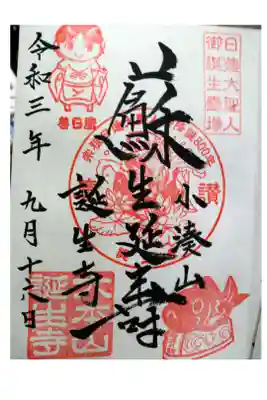 日蓮大聖人
御誕生霊場
讃
小湊山
蘇生延寿
誕生寺
善日麿
令和三年 九月十六日
大本山
誕生寺